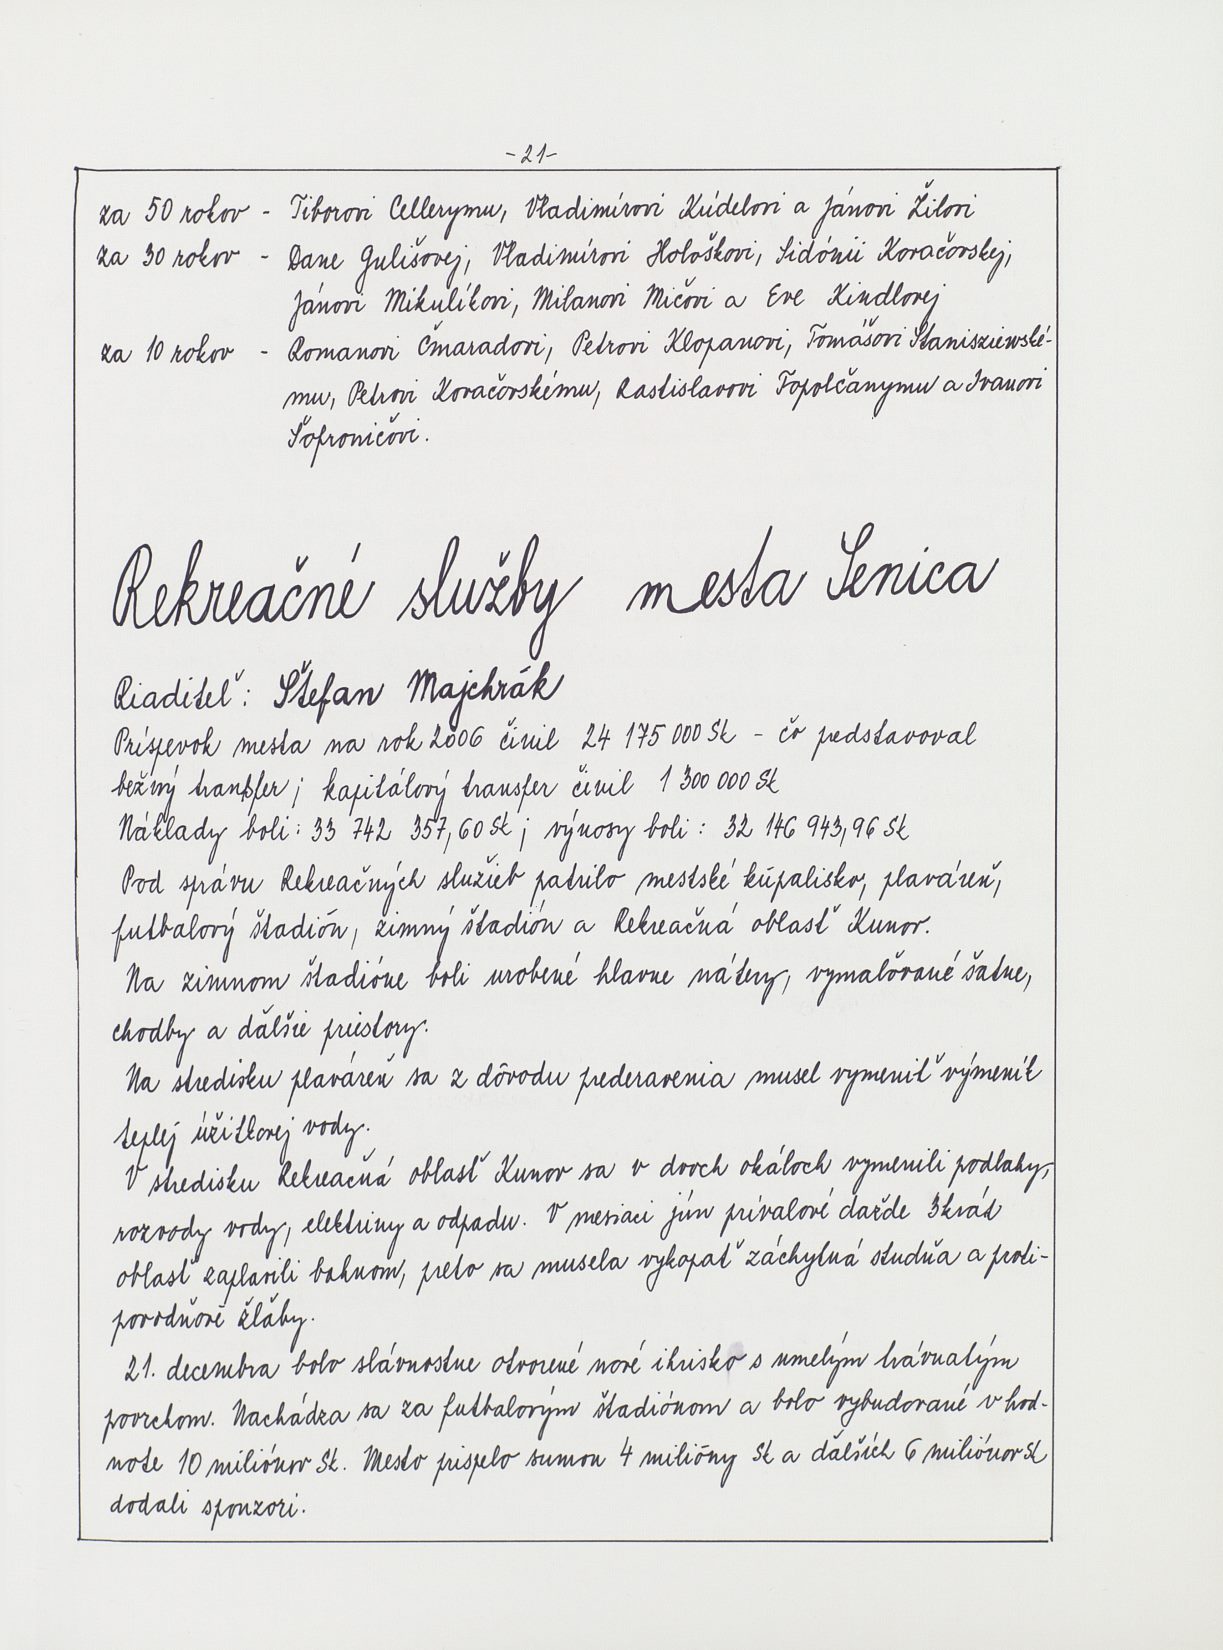 -21-
za 50 rokov - Tiborovi Cellerymu, Vladimírovi Kúdelovi a Jánovi Žilovi
za 30 rokov - Dane Gulišovej, Vladimírovi Hološkovi, Sidónii Kovačovskej,
Jánovi Mikulíkovi, Milanovi Mičovi a Eve Kindlovej
za 10 rokov - Romanovi Čmaradovi, Petrovi Klopanovi, Tomášovi Staniszewské-
mu, Petrovi Kovačovskému, Rastislavovi Topolčanymu a Ivanovi
Šofroničovi.
Rekreačné služby mesta Senica
Riaditeľ: Štefan Majchrák
Príspevok mesta na rok 2006 činil 24 175 000 Sk - čo pedstavoval
bežný transfer; kapitálový transfer činil 1 300 000 Sk
Náklady boli: 33 742 357,60 Sk; výnosy boli: 32 146 943,96 Sk
Pod správu Rekreačných služieb patrilo mestské kúpalisko, plaváreň,
futbalový štadión, zimný štadión a Rekreačná oblasť Kunov.
Na zimnom štadióne boli urobené hlavne nátery, vymaľované šatne,
chodby a ďalšie priestory.
Na stredisku plaváreň sa z dôvodu prederavenia musel vymeniť výmeník
teplej úžitkovej vody.
V stredisku Rekreačná oblasť Kunov sa v dvoch okáloch vymenili podlahy,
rozvody vody, elektriny a odpadu. V mesiaci jún prívalové dažde 3krát
oblasť zaplavili bahnom, preto sa musela vykopať záchytná studňa a proti-
povodňové žľaby.
21. decembra bolo slávnostne otvorené nové ihrisko s umelým trávnatým
povrchom. Nachádza sa za futbalovým štadiónom a bolo vybudované v hod-
note 10 miliónov Sk. Mesto prispelo sumou 4 milióny Sk a ďalších 6 miliónov Sk
dodali sponzori.